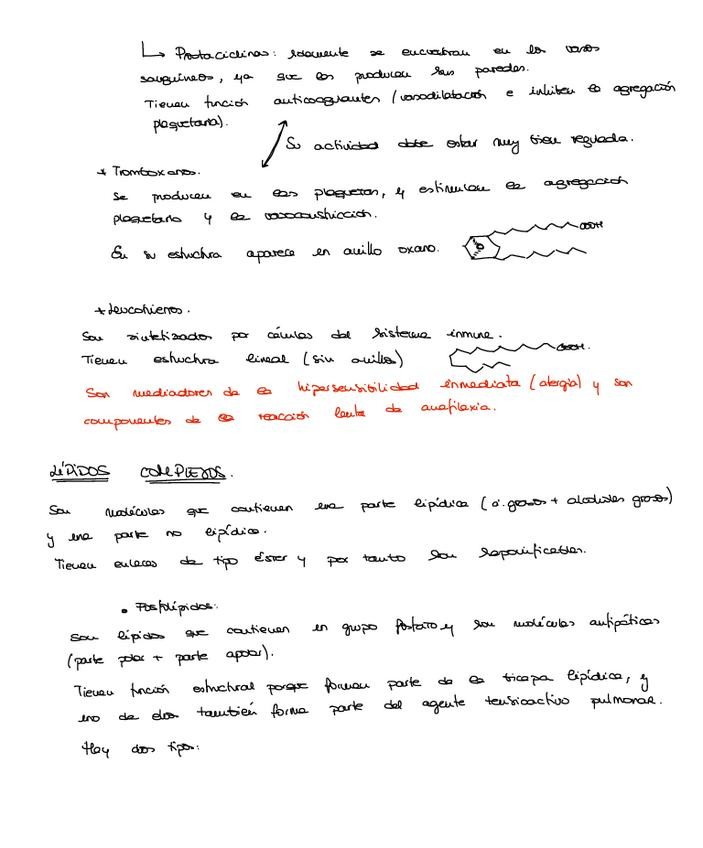 ↳ Prostaciclinas: solamente se encuentran en los vasos
sanguíneos, ya que los producen sus paredes.
Tienen función anticoagulantes (vasodilatación e inhiben la agregación
plaquetaria).
Su actividad debe estar muy bien regulada.
* Tromboxanos.
Se producen en las plaquetas, y estimulan la agregación
plaquetaria y la vasoconstricción.
En su estructura aparece un anillo oxano.
COOH
* Leucotrienos.
Son sintetizados por células del sistema inmune.
COOH.
Tienen estructura lineal (sin anillo)
Son mediadores de la hipersensibilidad inmediata (alergia) y son
componentes de la reacción lenta de anafilaxia.
LÍPIDOS COMPLEJOS.
Son moléculas que contienen una parte lipídica (á. grasos + alcoholes grasos)
y una parte no lipídica.
Tienen enlaces de tipo éster y por tanto son saponificables.
• Fosfolípidos:
Son lípidos que contienen un grupo fosfato y son moléculas antipáticas
(parte polar + parte apolar).
Tienen función estructural porque forman parte de la bicapa lipídica, y
uno de ellos también forma parte del agente tensioactivo pulmonar.
Hay dos tipos: